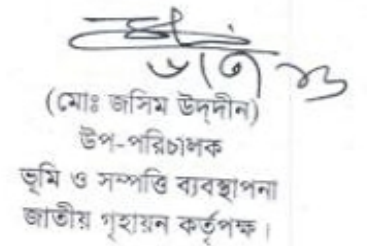 (মোঃ জসিম উদ্দীন)
উপ-পরিচালক
ভূমি ও সম্পত্তি ব্যবস্থাপনা
জাতীয় গৃহায়ন কর্তৃপক্ষ।